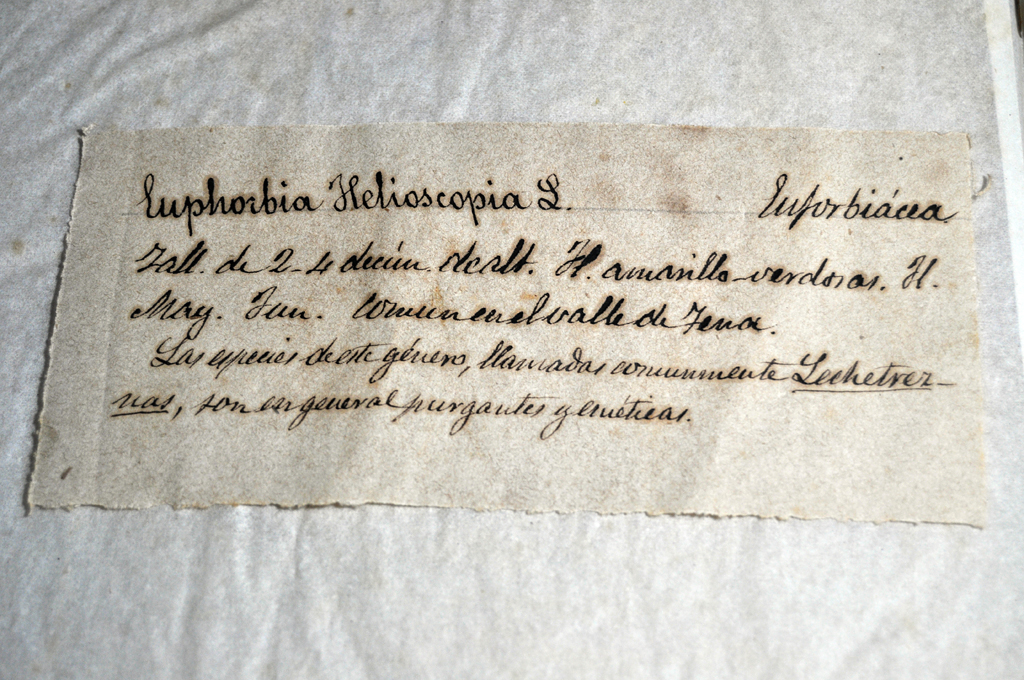 Euphorbia Helioscopia L. Euforbiácea
Tall. de 2-4 decím. de alt. Fl. amarillo-verdosas. Fl.
May. Jun. Comun en el valle de Tena.
Las especies de este género, llamadas comunmente Lechetrez-
nas, son en general purgantes y eméticas.